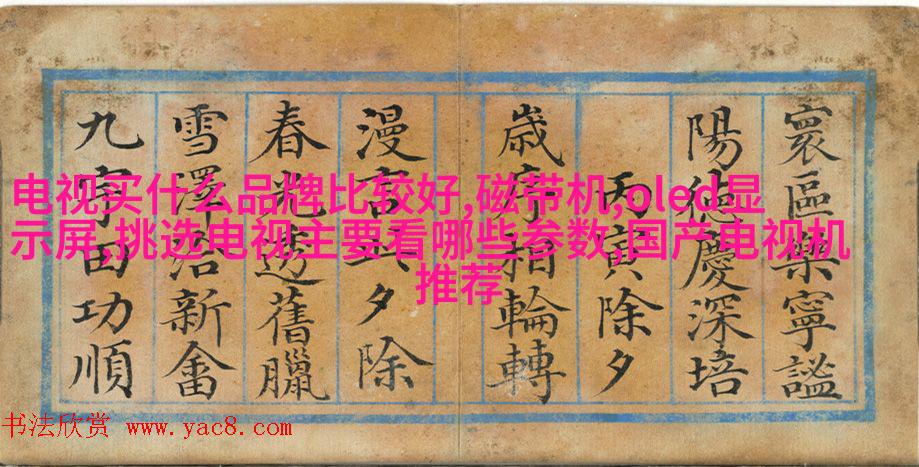 电视买什么品牌比较好,磁带机,oled显
示屏,挑选电视主要看哪些参数,国产电视机
推荐
寰區樂寧謐
陽德慶深培
丙寅除夕
歲序相輪轉
漫言弌夕除
春光舊臘
雪澤洽新畬
九宇田功順
书法欣赏 www.yac8.com